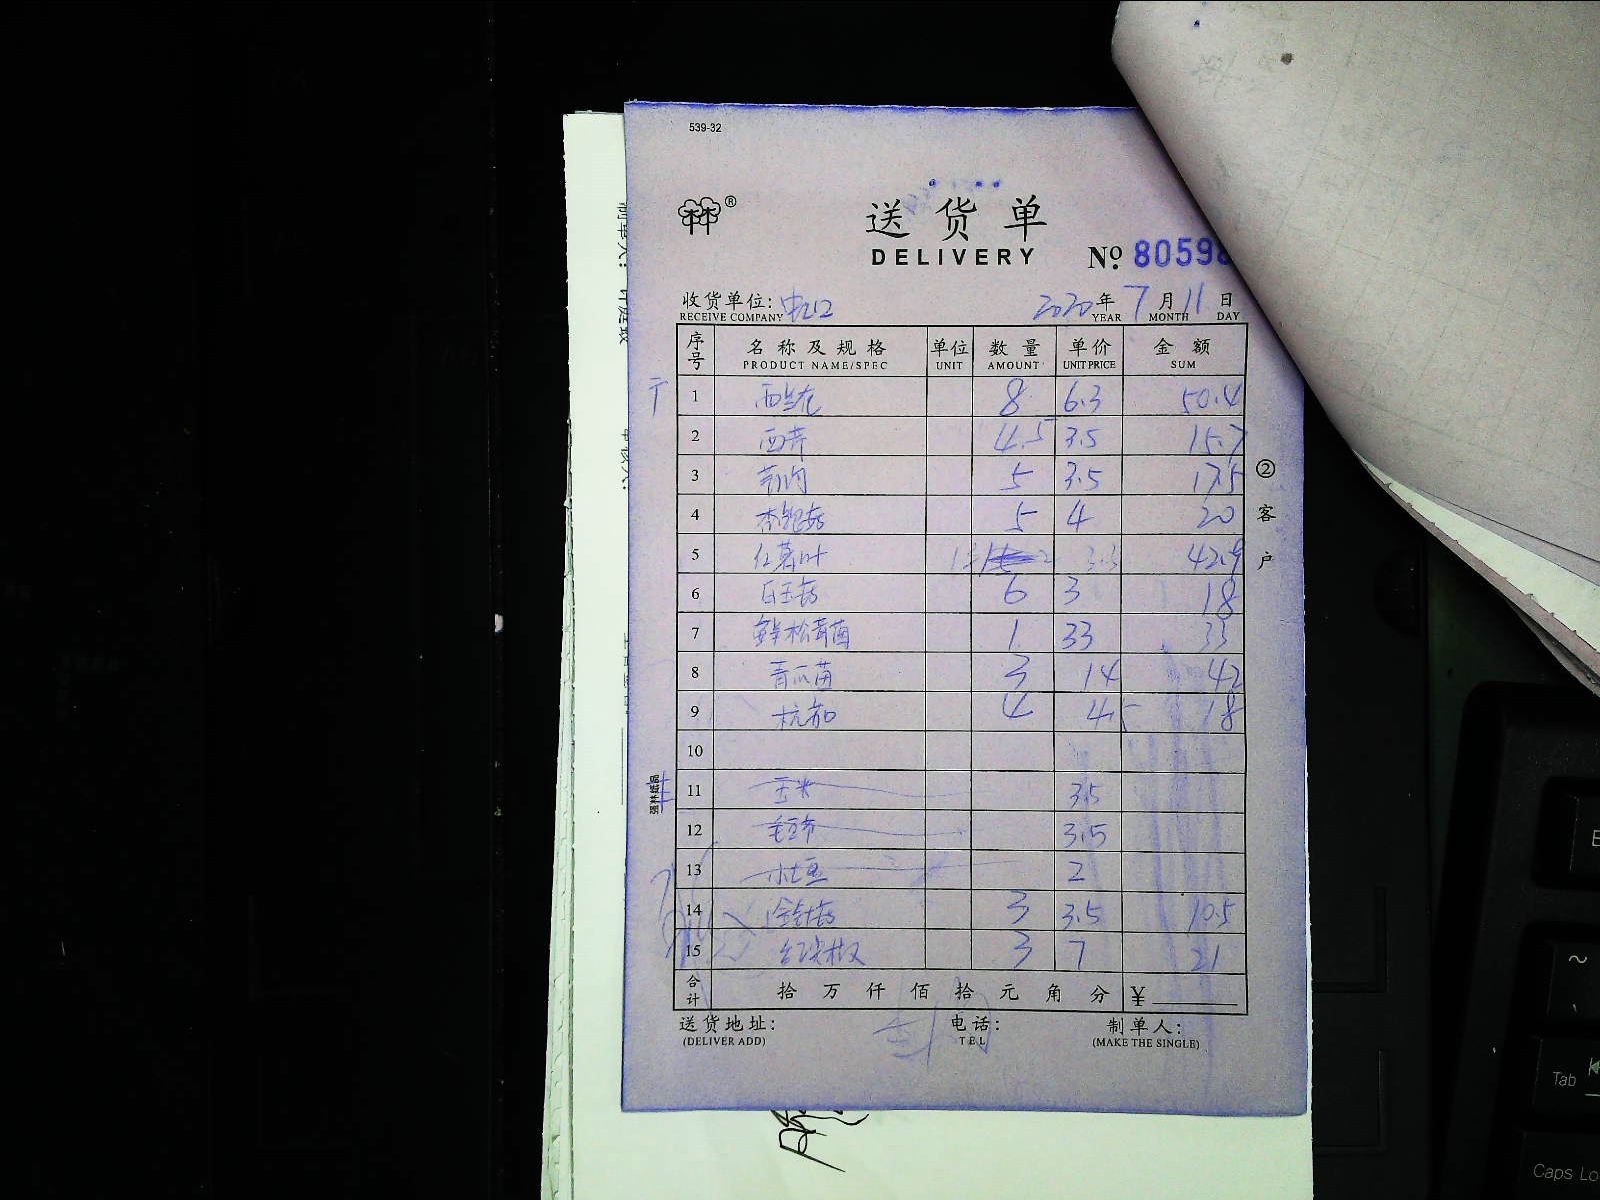 539-32
®
送货单
DELIVERY
№ 80598
收货单位:
RECEIVE COMPANY
2020 年 7 月 11 日
YEAR MONTH DAY
序号 名称及规格 单位 数量 单价 金额
PRODUCT NAME/SPEC UNIT AMOUNT UNIT PRICE SUM
1 西兰花 8 6.3 50.4
2 西芹 4.5 3.5 15.7
3 5 3.5 17.5
4 杏鲍菇 5 4 20
5 红薯叶 3.3 42.9
6 白玉菇 6 3 18
7 鲜松茸菌 1 33 33
8 青瓜苗 3 14 42
9 杭茄 4 4.5 18
10
11 玉米 3.5
12 3.5
13 2
14 金针菇 3 3.5 10.5
15 红尖椒 3 7 21
合计 拾 万 仟 佰 拾 元 角 分 ¥
送货地址: 电话: 制单人:
(DELIVER ADD) TEL (MAKE THE SINGLE)
②客户
强林纸品
制单人:
Tab
Caps Lo